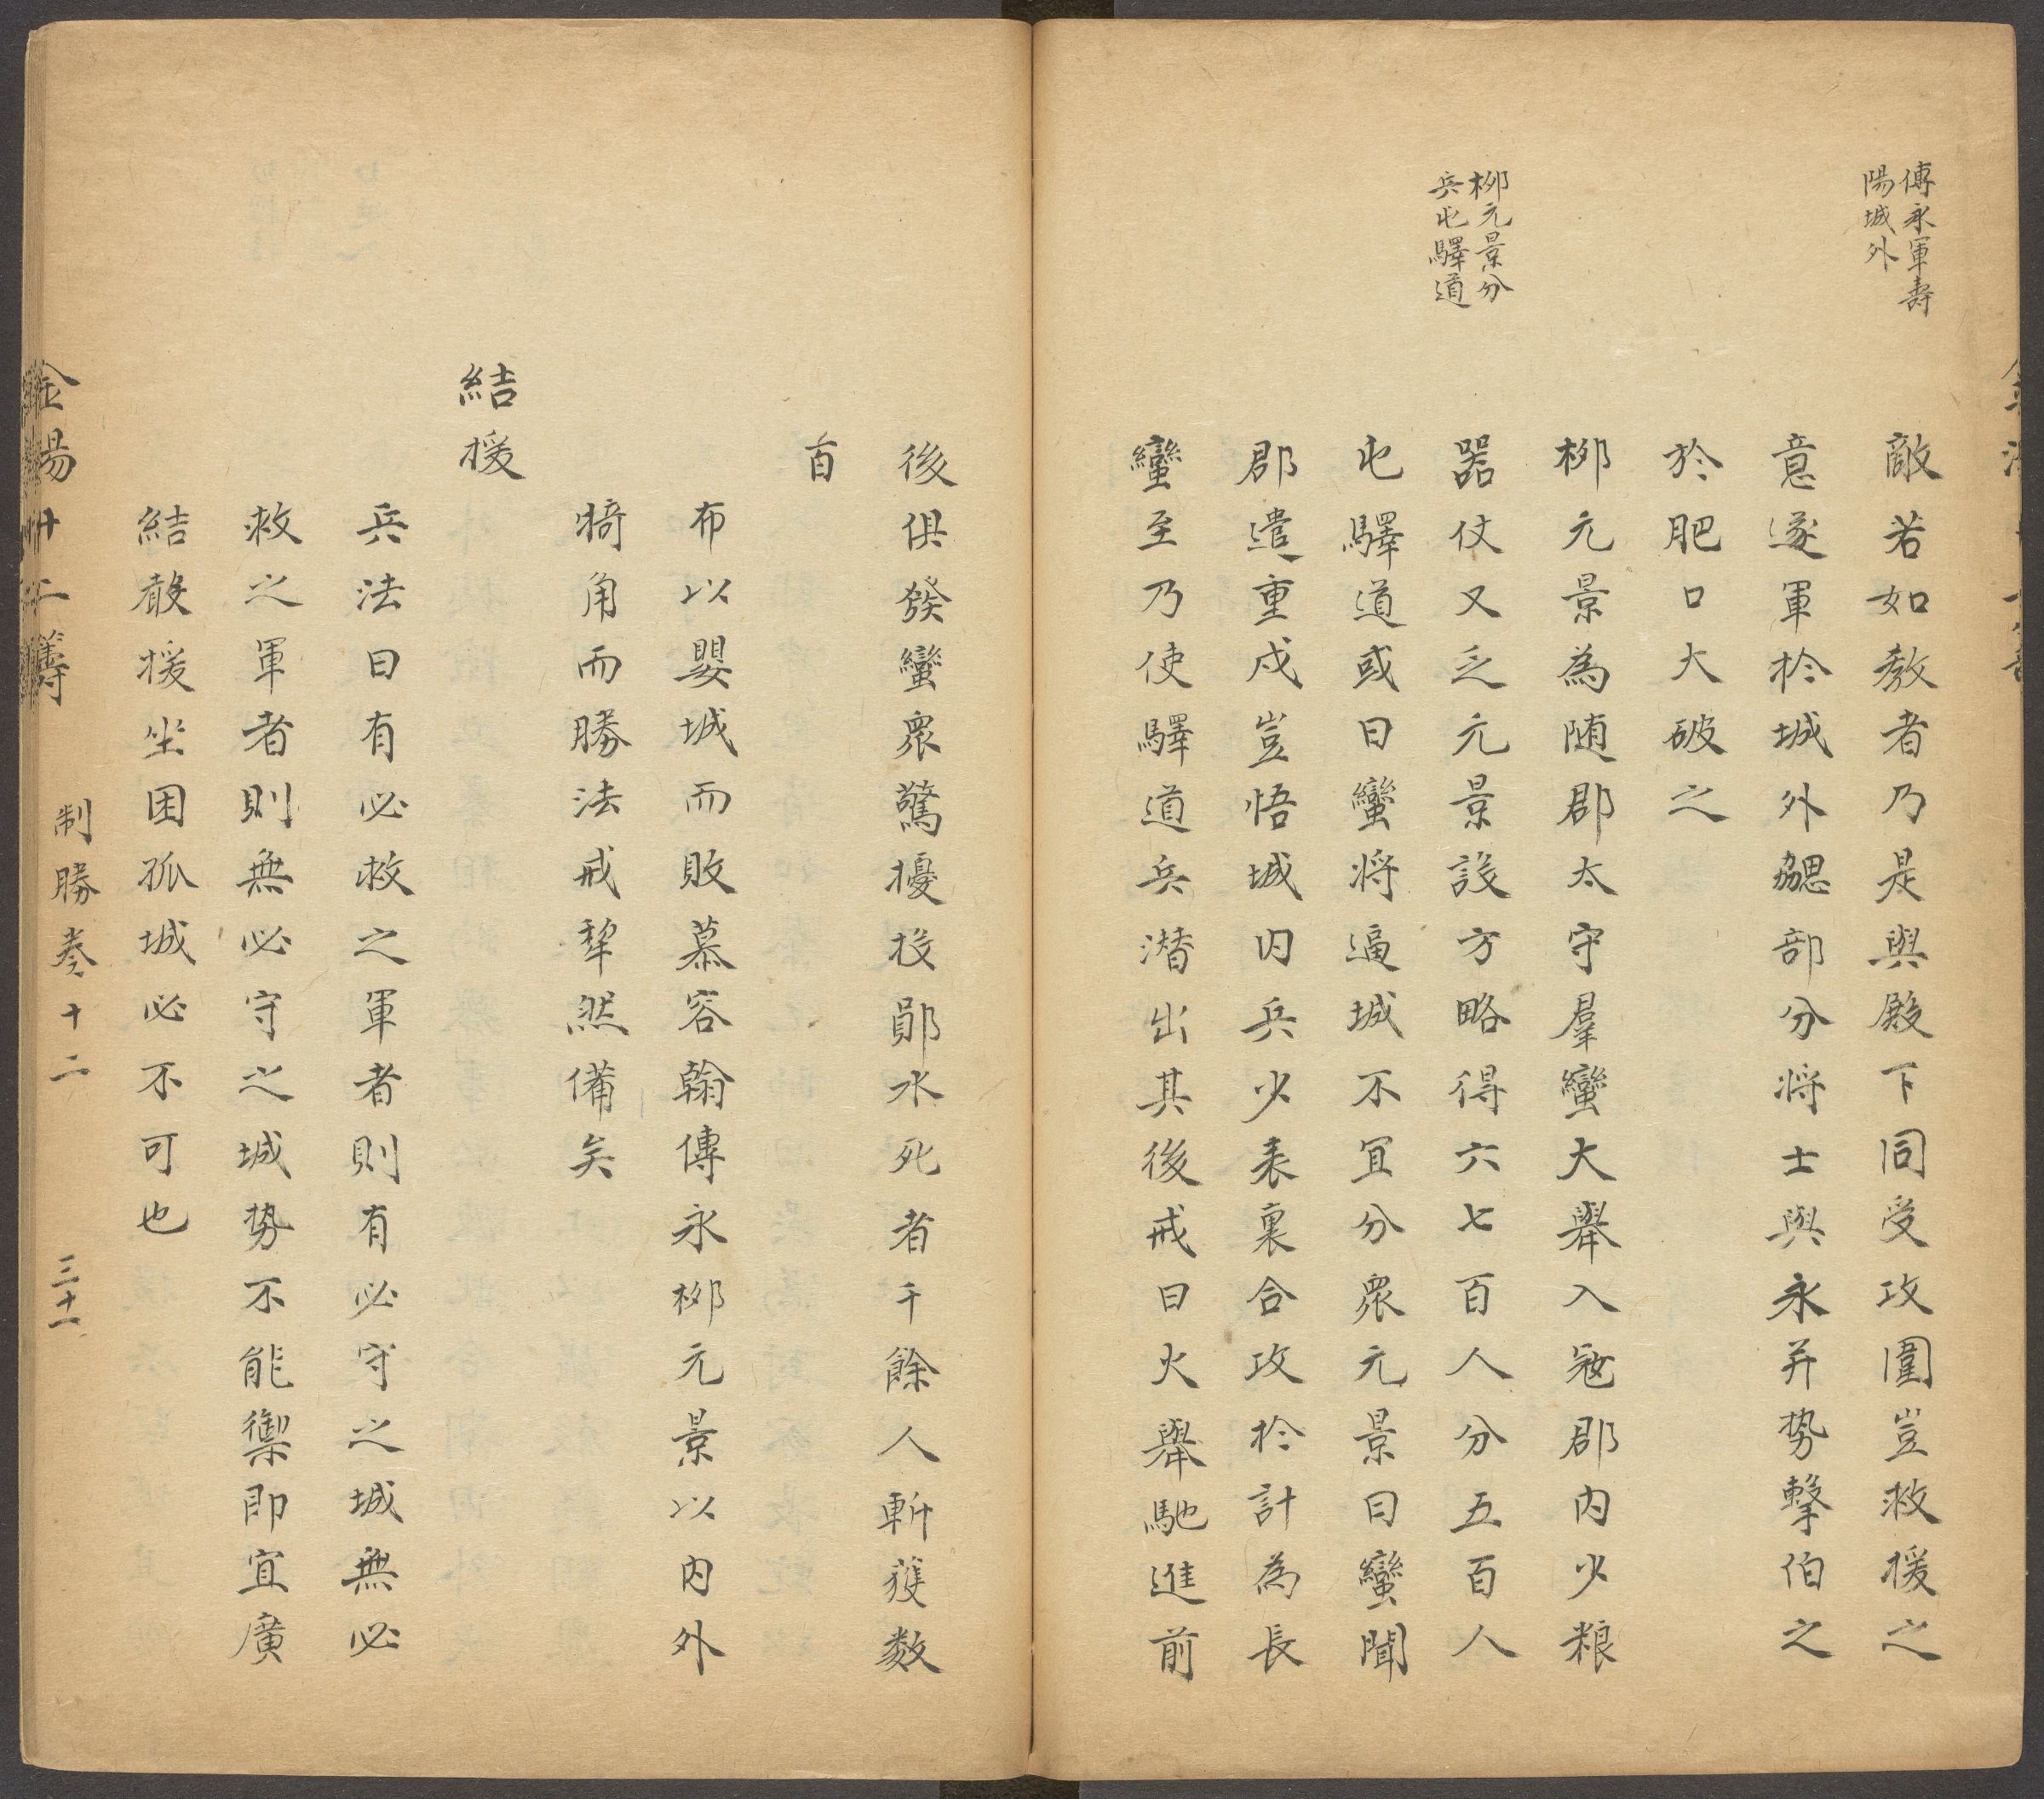 傅永軍壽
陽城外
敵若如教者乃是與殿下同受攻圍豈救援之
意遂軍於城外勰部分将士與永并势擊伯之
於肥口大破之
栁元景為随郡太守羣蠻大舉入冦郡内少粮
栁元景分
兵屯驛道
器仗又乏元景設方略得六七百人分五百人
屯驛道或曰蠻将逼城不冝分衆元景曰蠻聞
郡遣重戍豈悟城内兵少表裏合攻於計為長
蠻至乃使驛道兵潜出其後戒曰火舉馳進前
後俱發蠻衆驚擾投鄖水死者千餘人斬獲数
百
布以嬰城而敗慕容翰傅永栁元景以内外
犄角而勝法戒犂然備矣
結援
兵法曰有必救之軍者則有必守之城無必
救之軍者則無必守之城势不能禦即宜廣
結聲援坐困孤城必不可也
金湯十二籌
制勝卷十二
三十一